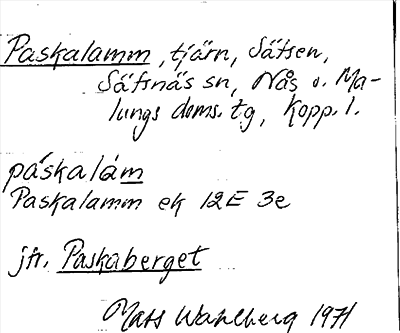 Paskalamm, tjärn, Sätsen,
Säfsnäs sn, Nås o. Ma-
lungs doms. tg, Kopp. l.
páskalám
Paskalamm ek 12E 3e
jfr. Paskaberget
Mats Wahlberg 1971